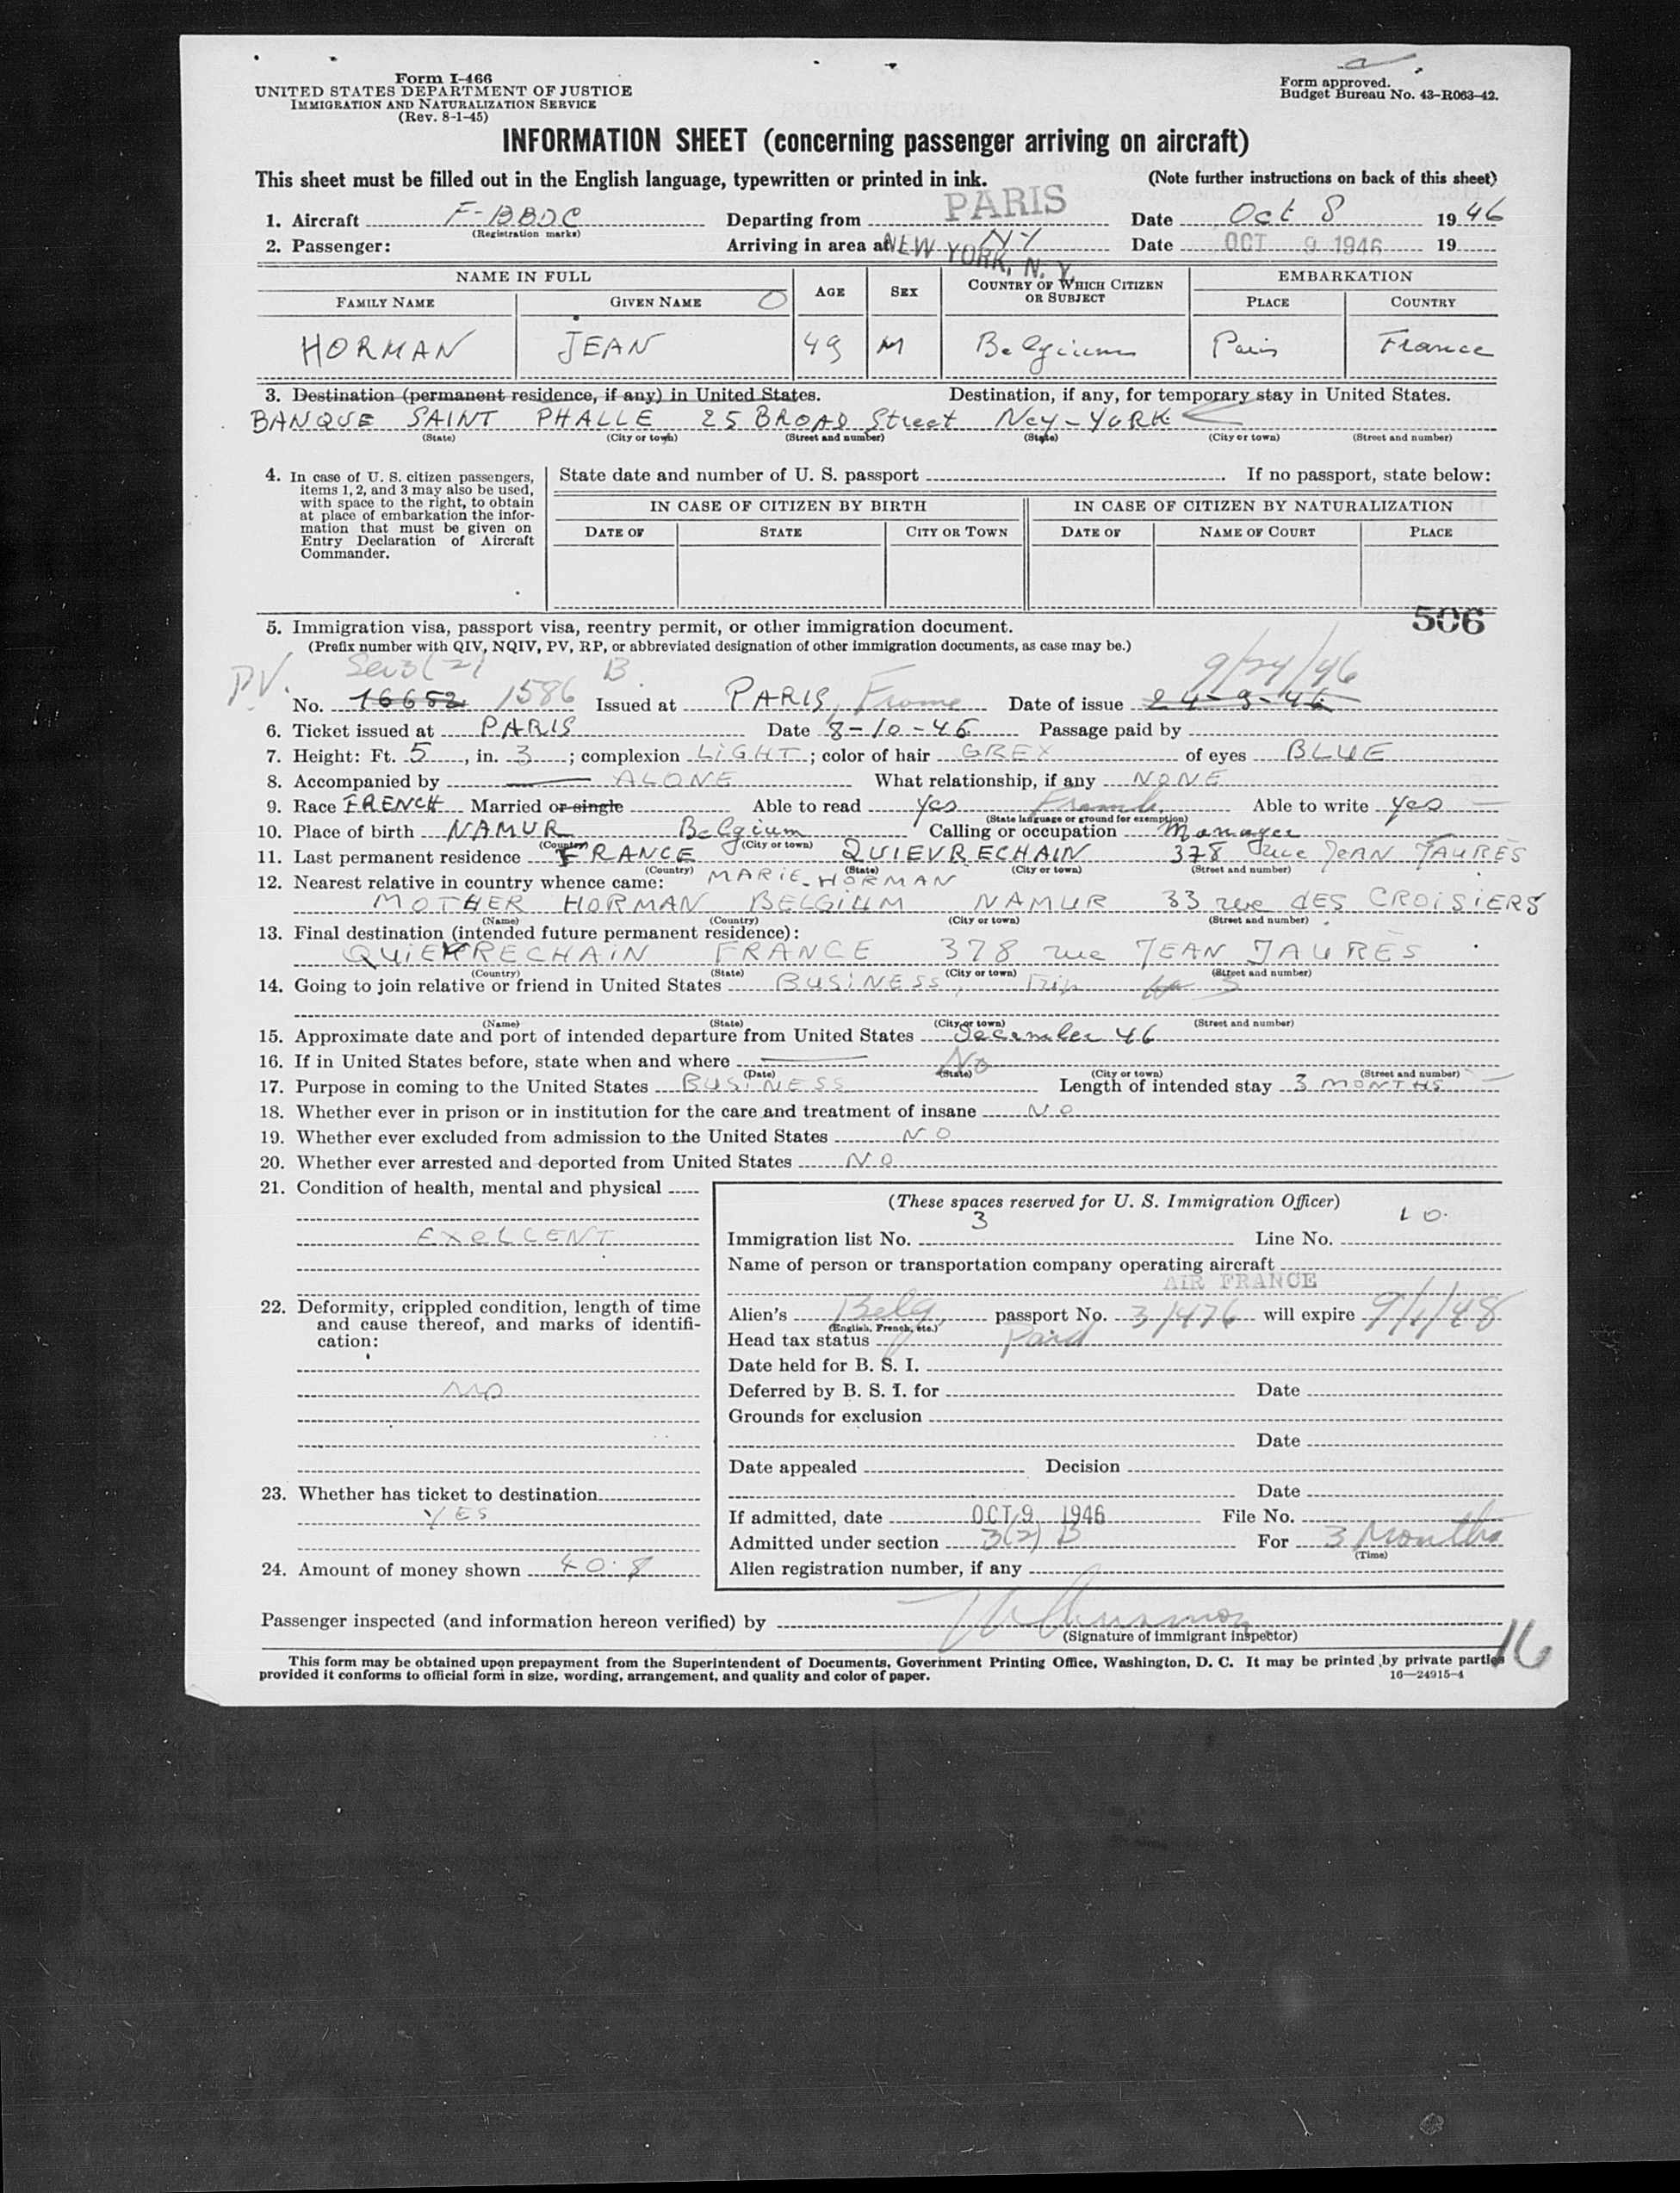 Form I-466
UNITED STATES DEPARTMENT OF JUSTICE
IMMIGRATION AND NATURALIZATION SERVICE
(Rev. 8-1-45)
Form approved.
Budget Bureau No. 43-R063-42.
INFORMATION SHEET (concerning passenger arriving on aircraft)
This sheet must be filled out in the English language, typewritten or printed in ink. (Note further instructions on back of this sheet)
1. Aircraft F-BBDC Departing from PARIS Date Oct 8 1946
(Registration marks)
2. Passenger: Arriving in area at NEW YORK, N. Y. NY Date OCT 9 1946 19
NAME IN FULL AGE SEX COUNTRY OF WHICH CITIZEN OR SUBJECT EMBARKATION
FAMILY NAME GIVEN NAME PLACE COUNTRY
HORMAN JEAN 49 M Belgium Paris France
3. Destination (permanent residence, if any) in United States. Destination, if any, for temporary stay in United States.
BANQUE SAINT PHALLE 25 BROAD Street Ney-YORK
(State) (City or town) (Street and number) (State) (City or town) (Street and number)
4. In case of U. S. citizen passengers, items 1, 2, and 3 may also be used, with space to the right, to obtain at place of embarkation the information that must be given on Entry Declaration of Aircraft Commander.
State date and number of U. S. passport If no passport, state below:
IN CASE OF CITIZEN BY BIRTH IN CASE OF CITIZEN BY NATURALIZATION
DATE OF STATE CITY OR TOWN DATE OF NAME OF COURT PLACE
506
5. Immigration visa, passport visa, reentry permit, or other immigration document.
(Prefix number with QIV, NQIV, PV, RP, or abbreviated designation of other immigration documents, as case may be.)
PV. Sec 3(2) B 9/24/46
No. 16652 1586 Issued at PARIS, France Date of issue 24-9-46
6. Ticket issued at PARIS Date 8-10-46 Passage paid by
7. Height: Ft. 5, in. 3; complexion LIGHT; color of hair GREY of eyes BLUE
8. Accompanied by ALONE What relationship, if any NONE
9. Race FRENCH Married or single Able to read yes French Able to write yes
(State language or ground for exemption)
10. Place of birth NAMUR Belgium Calling or occupation Manager
(Country) (City or town)
11. Last permanent residence FRANCE QUIEVRECHAIN 378 rue JEAN JAURES
(Country) (State) (City or town) (Street and number)
12. Nearest relative in country whence came: MARIE HORMAN
MOTHER HORMAN BELGIUM NAMUR 33 rue dES CROISIERS
(Name) (Country) (City or town) (Street and number)
13. Final destination (intended future permanent residence):
QUIEVRECHAIN FRANCE 378 rue JEAN JAURES
(Country) (State) (City or town) (Street and number)
14. Going to join relative or friend in United States BUSINESS, Trip
(Name) (State) (City or town) (Street and number)
15. Approximate date and port of intended departure from United States December 46
16. If in United States before, state when and where No
(Date) (State) (City or town) (Street and number)
17. Purpose in coming to the United States BUSINESS Length of intended stay 3 MONTHS
18. Whether ever in prison or in institution for the care and treatment of insane NO
19. Whether ever excluded from admission to the United States NO
20. Whether ever arrested and deported from United States NO
21. Condition of health, mental and physical
EXELLENT
22. Deformity, crippled condition, length of time and cause thereof, and marks of identification:
NO
23. Whether has ticket to destination
YES
24. Amount of money shown 40 $
(These spaces reserved for U. S. Immigration Officer)
Immigration list No. 3 Line No. 10.
Name of person or transportation company operating aircraft
AIR FRANCE
Alien's Belg. passport No. 31476 will expire 9/1/48
(English, French, etc.)
Head tax status Paid
Date held for B. S. I.
Deferred by B. S. I. for Date
Grounds for exclusion
Date
Date appealed Decision
Date
If admitted, date OCT 9 1946 File No.
Admitted under section 3(2) B For 3 Months
(Time)
Alien registration number, if any
Passenger inspected (and information hereon verified) by
(Signature of immigrant inspector)
16
This form may be obtained upon prepayment from the Superintendent of Documents, Government Printing Office, Washington, D. C. It may be printed by private parties
provided it conforms to official form in size, wording, arrangement, and quality and color of paper. 16—24915-4